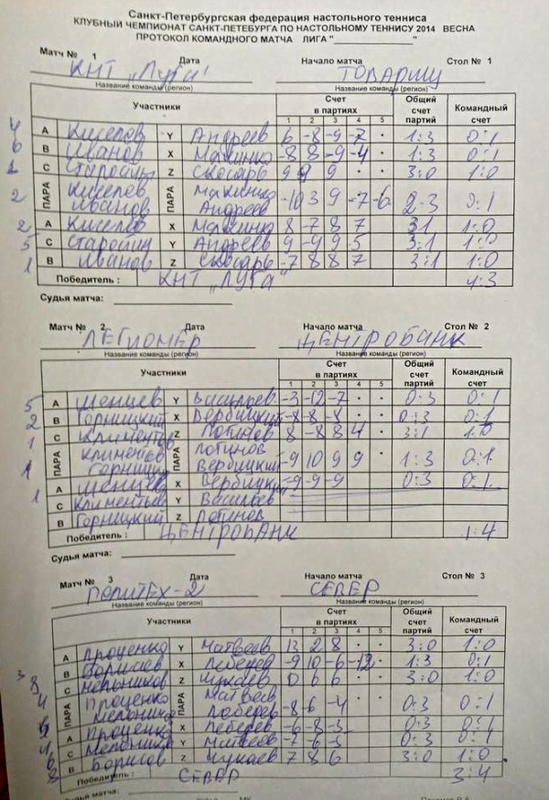 Санкт-Петербургская федерация настольного тенниса
КЛУБНЫЙ ЧЕМПИОНАТ САНКТ-ПЕТЕБУРГА ПО НАСТОЛЬНОМУ ТЕННИСУ 2014 ВЕСНА
ПРОТОКОЛ КОМАНДНОГО МАТЧА ЛИГА "____________"
Матч № 1 Дата Начало матча Стол № 1
КНТ „Луга" ТОВАРИЩ
Название команды (регион) Название команды (регион)
Участники Счет в партиях Общий счет партий Командный счет
1 2 3 4 5
4 A Киселев Y Андреев 6 -8 -9 -7 · 1:3 0:1
6 B Иванов X Махинко -8 8 -9 -4 · 1:3 0:1
1 C Старошин Z Скосарь 9 9 9 3:0 1:0
2 ПАРА Киселев Иванов ПАРА Махинко Андреев -10 3 9 -7 -6 2-3 0:1
2 A Киселев X Махинко 8 -7 8 7 3:1 1:0
5 C Старошин Y Андреев 9 -9 9 5 3:1 1:0
1 B Иванов Z Скосарь -7 8 8 7 3:1 1:0
Победитель : КНТ „ЛУГА" 4:3
Судья матча:
Матч № 2 Дата Начало матча Стол № 2
ЛЕГИОНЕР ЦЕНТРОБАНК
Название команды (регион) Название команды (регион)
Участники Счет в партиях Общий счет партий Командный счет
1 2 3 4 5
5 A Y Васильев -3 -12 -7 · · 0:3 0:1
2 B Горницкий X Вербицкий -8 -8 -8 · · 0:3 0:1
1 C Климентов Z Логинов 8 -8 8 4 · 3:1 1:0
1 ПАРА Климентов Горницкий ПАРА Логинов Вербицкий -9 10 9 9 · 1:3 0:1
1 A X Вербицкий -9 -9 -9 0:3 0:1
C Климентьев Y Васильев
B Горницкий Z Логинов
Победитель : ЦЕНТРОБАНК 1:4
Судья матча:
Матч № 3 Дата Начало матча Стол № 3
ПОЛИТЕХ-2 СЕВЕР
Название команды (регион) Название команды (регион)
Участники Счет в партиях Общий счет партий Командный счет
1 2 3 4 5
A Проценко Y Матвеев 13 2 8 · · 3:0 1:0
B Борисов X Лебедев -9 10 -6 -12 · 1:3 0:1
C Мельников Z Чукаев 0 6 6 · · 3:0 1:0
ПАРА Проценко ПАРА Матвеев Лебедев -8 6 -4 0:3 0:1
A Проценко X Лебедев -6 -8 -3 · · 0:3 0:1
C Мельников Y Матвеев -7 -6 -3 · · 0:3 0:1
B Борисов Z Чукаев 7 8 6 3:0 1:0
Победитель : СЕВЕР 3:4